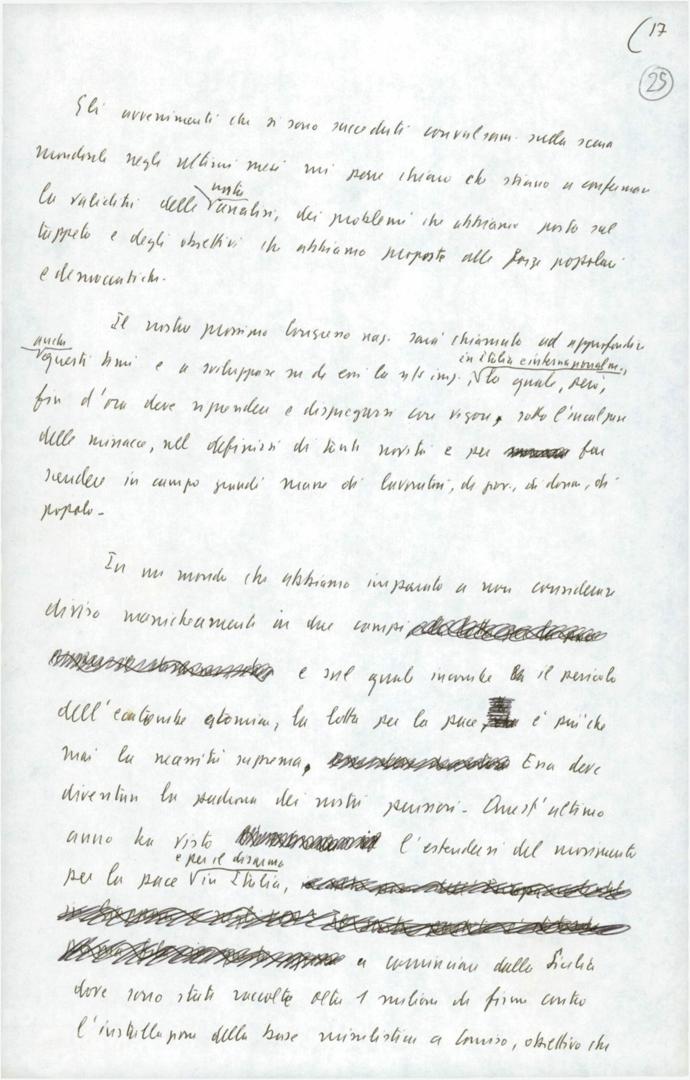 17
25
Gli avvenimenti che si sono succeduti convulsam. sulla scena
mondiale negli ultimi mesi mi pare chiaro che stiano a confermare
la validità delle nostre analisi, dei problemi che abbiamo posto sul
tappeto e degli obiettivi che abbiamo proposto alle forze popolari
e democratiche.
Il nostro prossimo Congresso naz. sarà chiamato ad approfondire
anche questi temi e a sviluppare su di essi la in Italia e internazionalm., la quale, però,
fin d'ora deve riprendere e dispiegarsi con vigore, sotto l'incalzare
delle minacce, nel definirsi di tante novità e per far
scendere in campo grandi masse di lavoratori, di giov., di donne, di
popolo.
In un mondo che abbiamo imparato a non considerare
diviso manicheamente in due campi
e sul quale incombe il pericolo
dell'ecatombe atomica, la lotta per la pace, è più che
mai la necessità suprema. Essa deve
diventare la padrona dei nostri pensieri. Quest'ultimo
anno ha visto l'estendersi del movimento
per la pace e per il disarmo in Italia,
a cominciare dalla Sicilia
dove sono state raccolte oltre 1 milione di firme contro
l'installazione della base missilistica a Comiso, obiettivo che